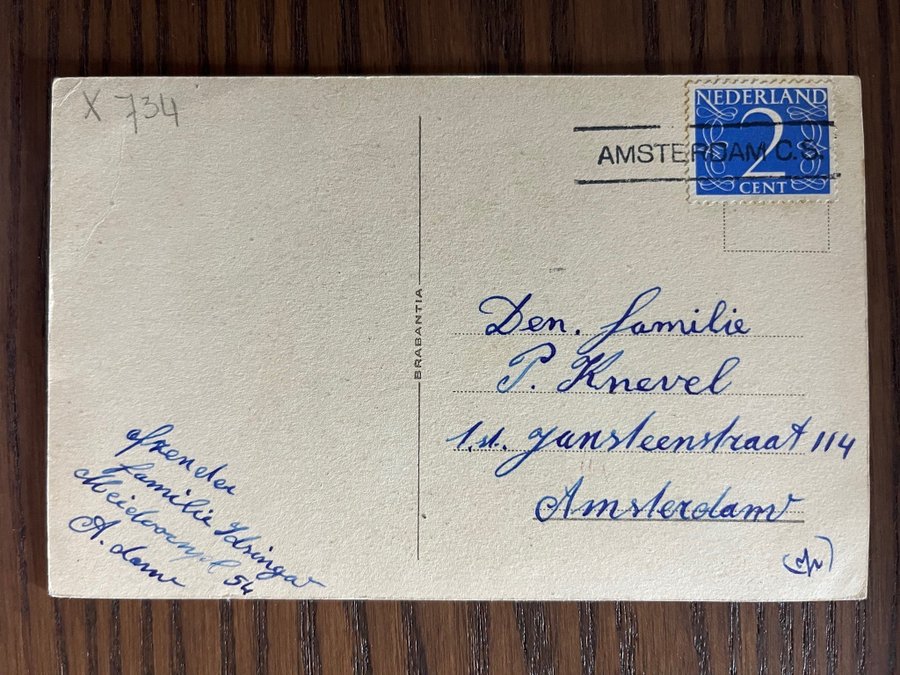 X 734
NEDERLAND
2
CENT
AMSTERDAM C.S.
BRABANTIA
Den. familie
P. Knevel
1.st. Jansteenstraat 114
Amsterdam
Afzender
familie Idsinga
Meidoornpl 54
A. dam